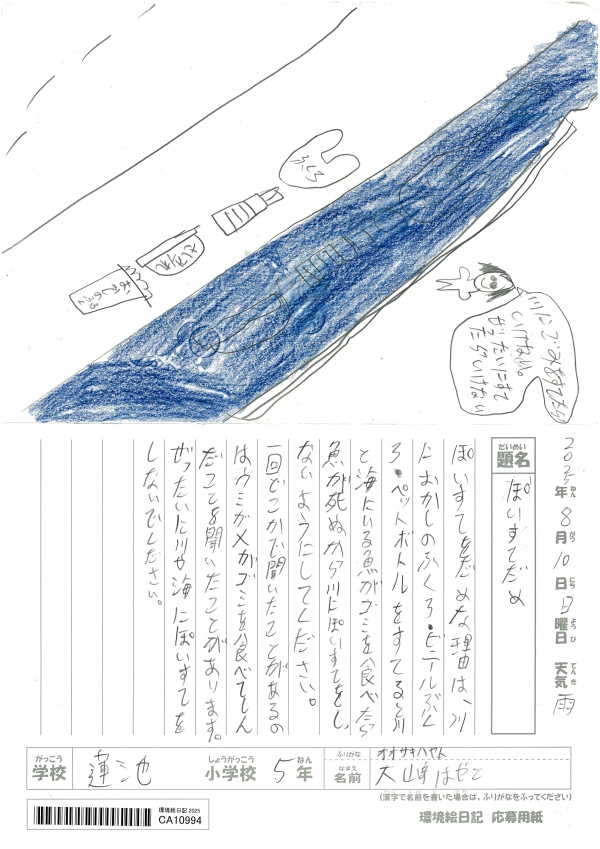 ふくろ
おかしのふくろ
川にごみをすてたら
いけない。
ぜったいにすて
たらいけない
2025年8月10日日曜日 天気雨
ねん がつ にち ようび てんき
だいめい
題名
ぽいすてだめ
ぽいすてをだめな理由は、川
におかしのふくろ・ビニールぶく
ろ・ペットボトルをすてると川
と海にいる魚がゴミを食べたら
魚が死ぬから川にぽいすてをし
ないようにしてください。
一回どこかで聞いたことがあるの
はウミガメがゴミを食べてしん
だことを聞いたことがあります。
ぜったいに川や海にぽいすてを
しないでください。
がっこう
学校
蓮池
しょうがっこう
小学校
5年
ねん
ふりがな
オオサキハヤト
なまえ
名前
大﨑はやと
(漢字で名前を書いた場合は、ふりがなをふってください)
環境絵日記 2025
CA10994
環境絵日記 応募用紙